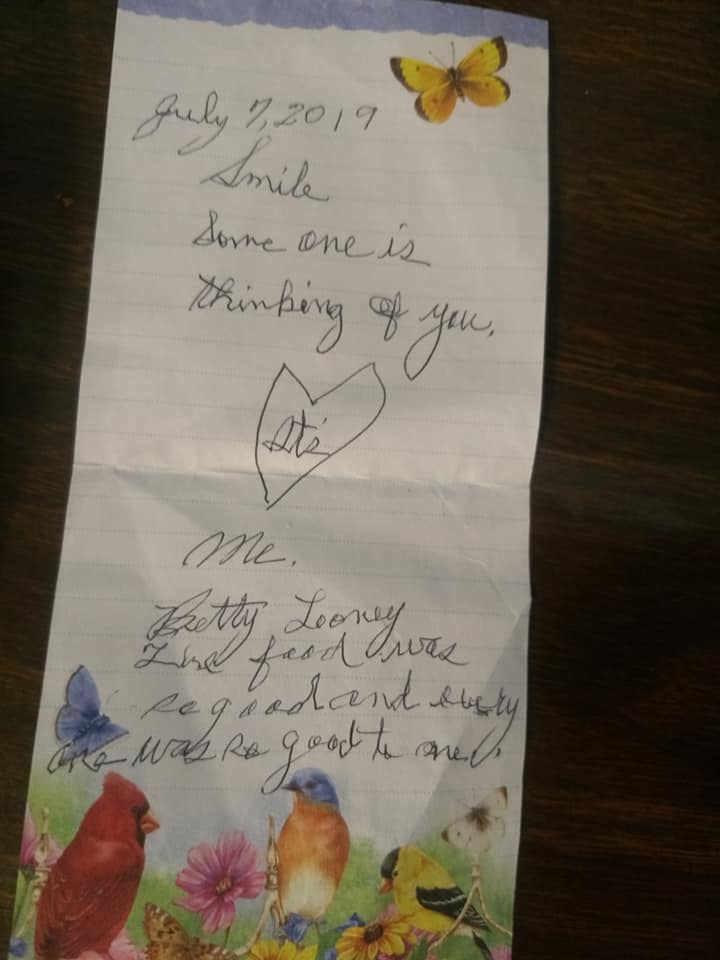 July 7, 2019
Smile
Some one is
thinking of you.
It's
Me.
Betty Looney
food was
so good and every
one was so good to me.